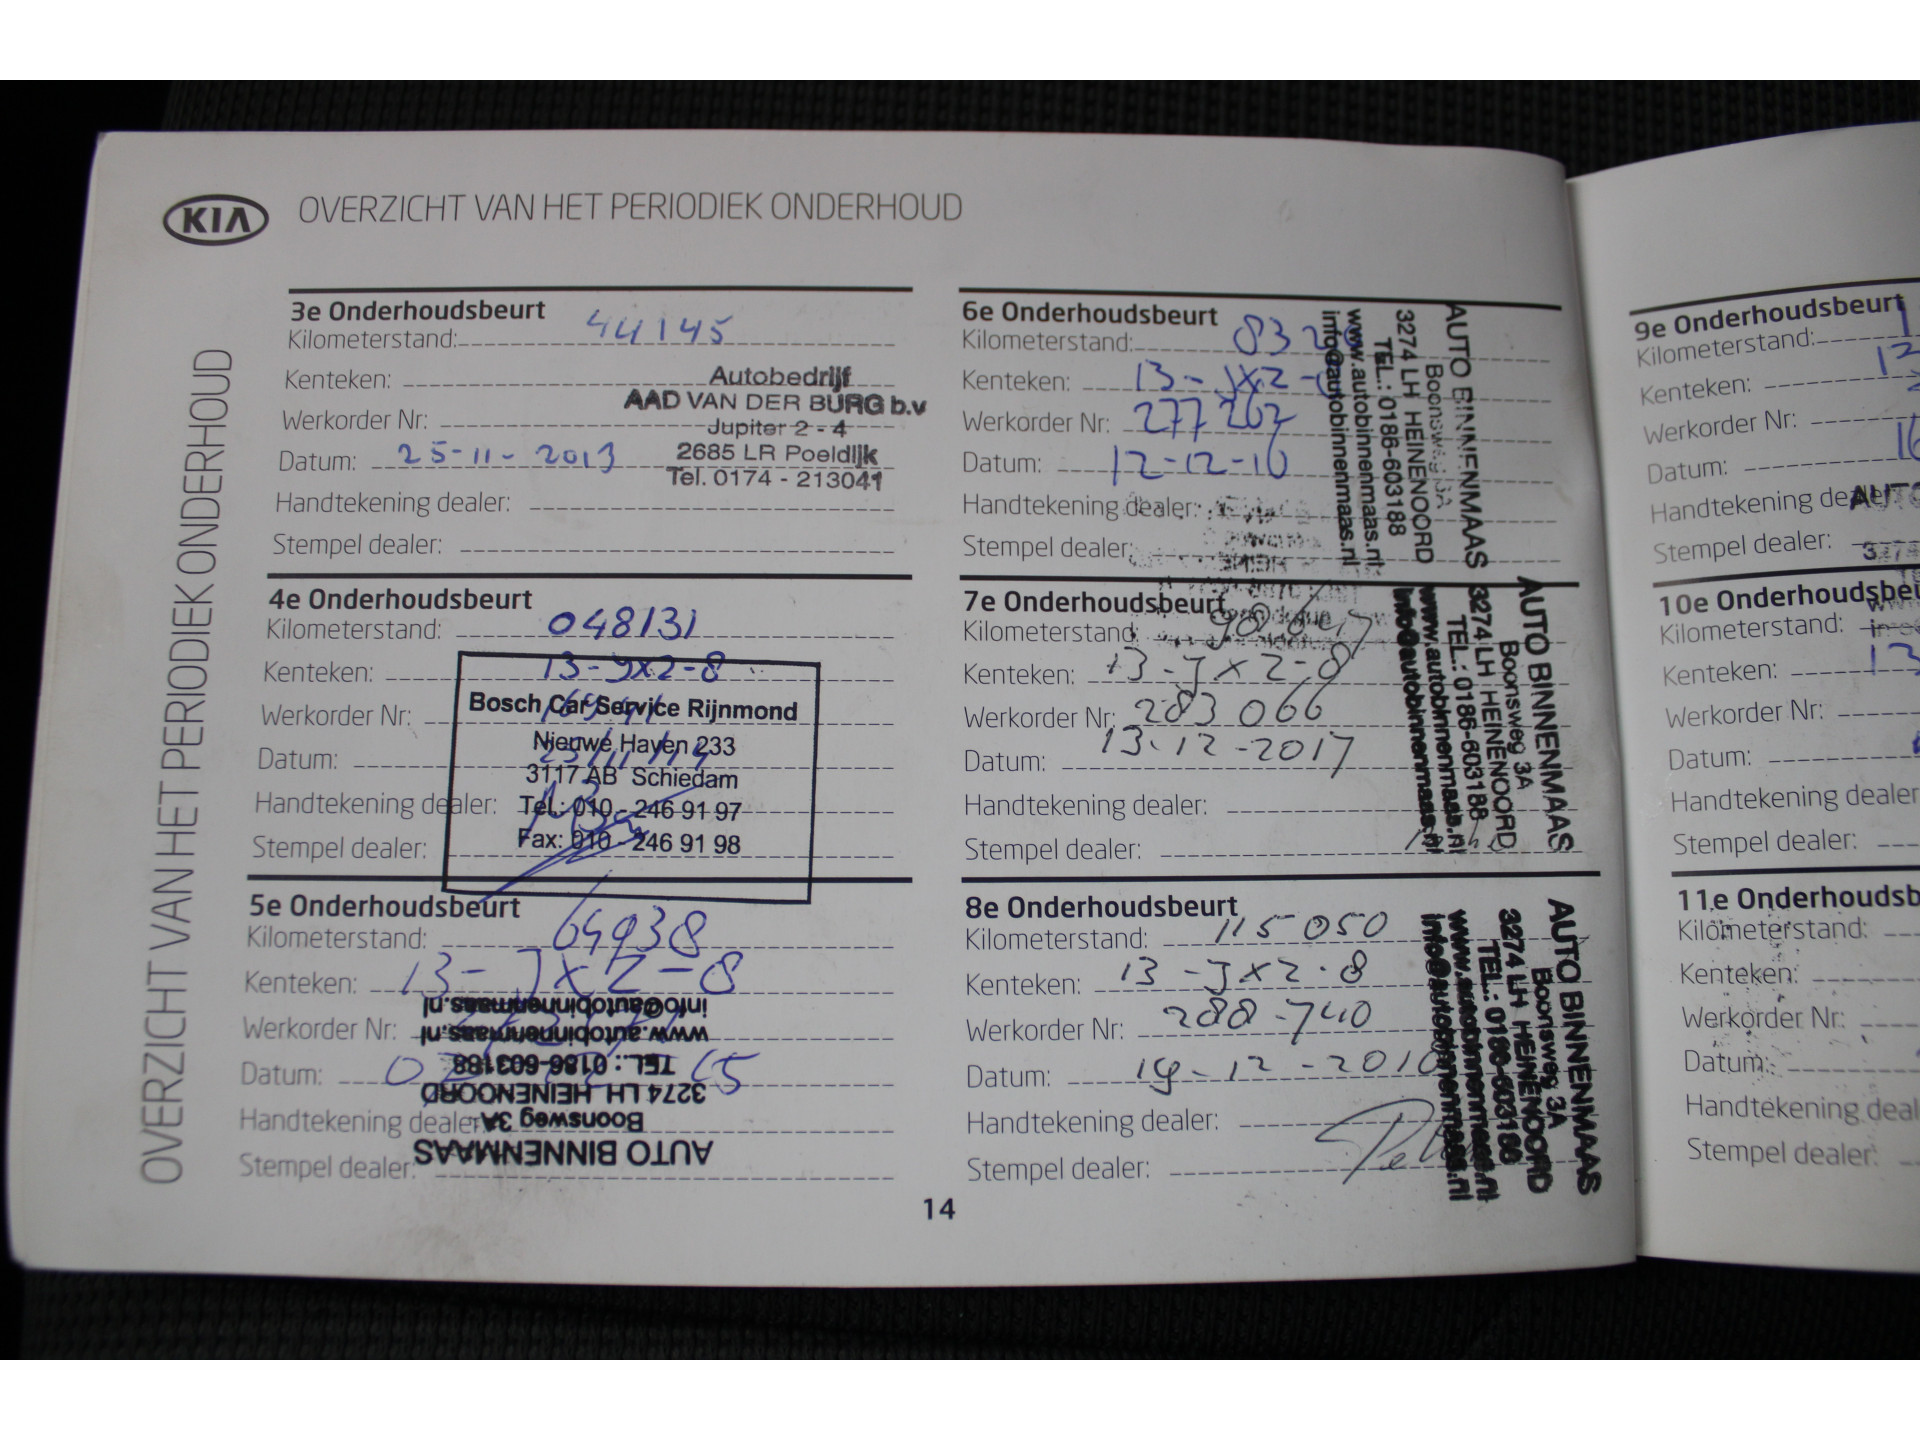 KIA OVERZICHT VAN HET PERIODIEK ONDERHOUD
OVERZICHT VAN HET PERIODIEK ONDERHOUD
3e Onderhoudsbeurt
Kilometerstand: 44145
Kenteken:
Werkorder Nr:
Datum: 25-11-2013
Handtekening dealer:
Stempel dealer:
Autobedrijf
AAD VAN DER BURG b.v
Jupiter 2 - 4
2685 LR Poeldijk
Tel. 0174 - 213041
4e Onderhoudsbeurt
Kilometerstand: 048131
Kenteken: 13-JXZ-8
Werkorder Nr:
Datum:
Handtekening dealer:
Stempel dealer:
Bosch Car Service Rijnmond
Nieuwe Haven 233
3117 AB Schiedam
Tel.: 010 - 246 91 97
Fax: 010 - 246 91 98
5e Onderhoudsbeurt
Kilometerstand: 64938
Kenteken: 13-JXZ-8
Werkorder Nr:
Datum:
Handtekening dealer:
Stempel dealer:
AUTO BINNENMAAS
Boonsweg 3A
3274 LH HEINENOORD
TEL.: 0186-603188
www.autobinnenmaas.nl
info@autobinnenmaas.nl
6e Onderhoudsbeurt
Kilometerstand:
Kenteken: 13-JXZ-
Werkorder Nr: 277262
Datum: 12-12-16
Handtekening dealer:
Stempel dealer:
AUTO BINNENMAAS
Boonsweg 3A
3274 LH HEINENOORD
TEL.: 0186-603188
www.autobinnenmaas.nl
info@autobinnenmaas.nl
7e Onderhoudsbeurt
Kilometerstand:
Kenteken: 13-JXZ-8
Werkorder Nr: 283066
Datum: 13-12-2017
Handtekening dealer:
Stempel dealer:
AUTO BINNENMAAS
Boonsweg 3A
3274 LH HEINENOORD
TEL.: 0186-603188
www.autobinnenmaas.nl
info@autobinnenmaas.nl
8e Onderhoudsbeurt
Kilometerstand: 115050
Kenteken: 13-JXZ-8
Werkorder Nr: 288-740
Datum:
Handtekening dealer:
Stempel dealer:
AUTO BINNENMAAS
Boonsweg 3A
3274 LH HEINENOORD
TEL.: 0186-603188
www.autobinnenmaas.nl
info@autobinnenmaas.nl
14
9e Onderhoudsbeurt
Kilometerstand:
Kenteken:
Werkorder Nr:
Datum:
Handtekening dealer:
Stempel dealer:
10e Onderhoudsbeu
Kilometerstand:
Kenteken: 13
Werkorder Nr:
Datum:
Handtekening dealer
Stempel dealer:
11e Onderhoudsb
Kilometerstand:
Kenteken:
Werkorder Nr:
Datum:
Handtekening deal
Stempel dealer: